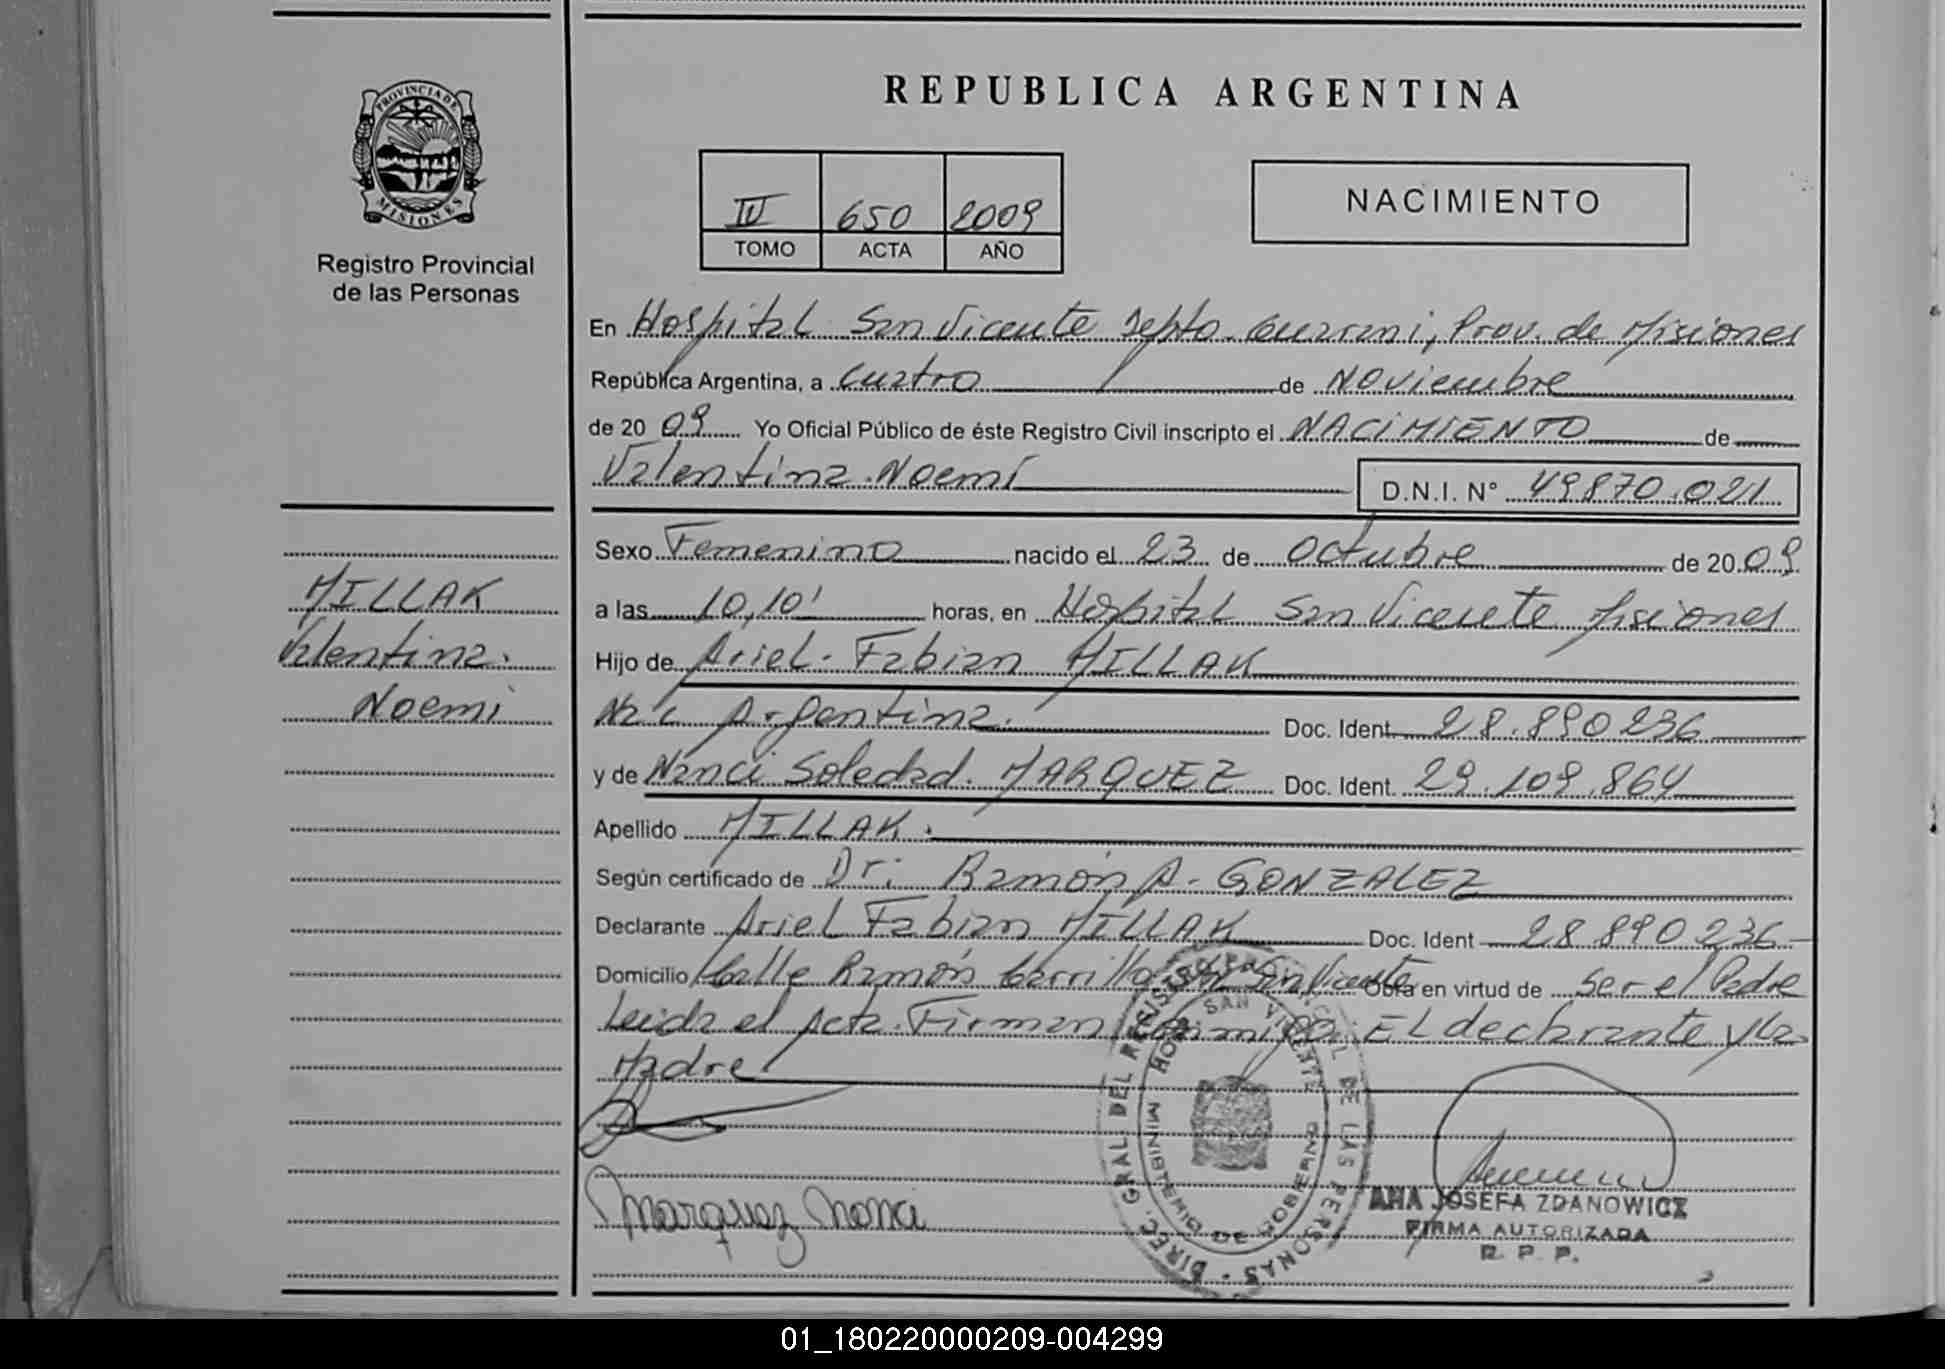 REPUBLICA ARGENTINA
PROVINCIA DE
MISIONES
Registro Provincial
de las Personas
IV 650 2009
TOMO ACTA AÑO
NACIMIENTO
En Hospital San Vicente Depto. Guarani, Prov. de Misiones
República Argentina, a Cuatro de Noviembre
de 2009 Yo Oficial Público de éste Registro Civil inscripto el NACIMIENTO de
Valentina Noemí
D.N.I. N° 49870.021
Sexo Femenino nacido el 23 de octubre de 2009
a las 10,10' horas, en Hospital San Vicente Misiones
Hijo de Ariel Fabian MILLAK
Nac Argentina. Doc. Ident. 28.890236
y de Nanci Soledad. MARQUEZ Doc. Ident. 29.109.864
Apellido MILLAK.
Según certificado de Dr. Ramón A. GONZALEZ
Declarante Ariel Fabian MILLAK Doc. Ident 28 890 236
Domicilio Calle Ramón Carrillo San Vicente Obra en virtud de ser el Padre
Leida el Acta. Firman Conmigo El declarante y la
Madre
MILLAK
Valentina
Noemi
Marquez Nanci
DIREC. GRAL DEL REGISTRO PROVINCIAL DE LAS PERSONAS
HOSP. SAN VICENTE
MINISTERIO DE GOBIERNO
ANA JOSEFA ZDANOWICZ
FIRMA AUTORIZADA
R. P. P.
01_180220000209-004299